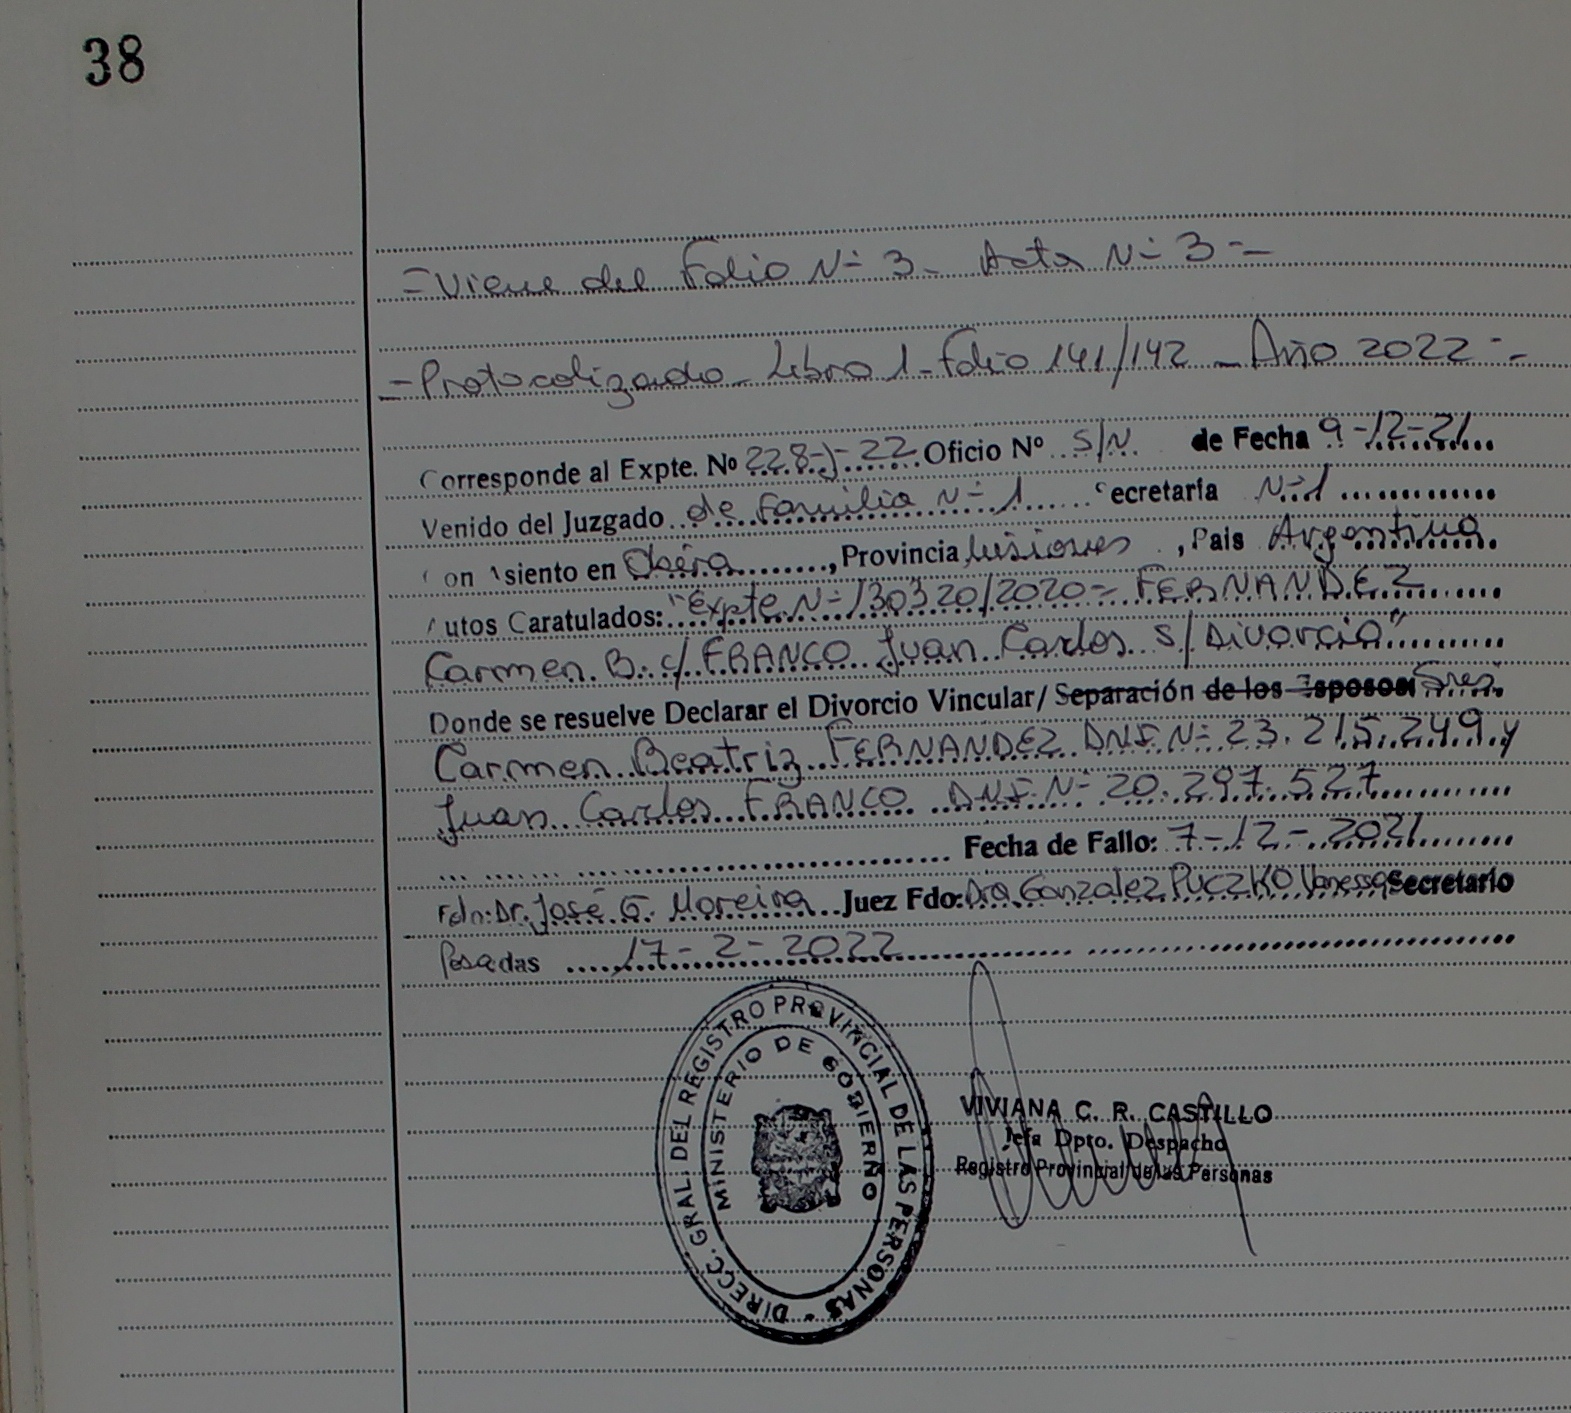 38
=Viene del Folio N° 3_ Acta N° 3=_
_Protocolizado_ Libro 1_Folio 141/142 _Año 2022=_
Corresponde al Expte. Nº 228-J-22 Oficio Nº S/N. de Fecha 9-12-21
Venido del Juzgado de Familia N° 1 Secretaría N°1
con Asiento en Oberá, Provincia Misiones, Pais Argentina
Autos Caratulados: "Expte N°130320/2020= FERNANDEZ
Carmen B. c/ FRANCO Juan Carlos S/Divorcio"
Donde se resuelve Declarar el Divorcio Vincular/ Separación de los Esposos Sres.
Carmen Beatriz FERNANDEZ DNI N° 23.215.249 y
Juan Carlos FRANCO DNI N° 20.297.527
Fecha de Fallo: 7-12-2021
Fdo: Dr. José G. Moreira Juez Fdo: Dra Gonzalez PUCZKO Vanessa Secretario
Posadas 17-2-2022
DIRECC. GRAL. DEL REGISTRO PROVINCIAL DE LAS PERSONAS
MINISTERIO DE GOBIERNO
VIVIANA C. R. CASTILLO
Jefa Dpto. Despacho
Registro Provincial de las Personas